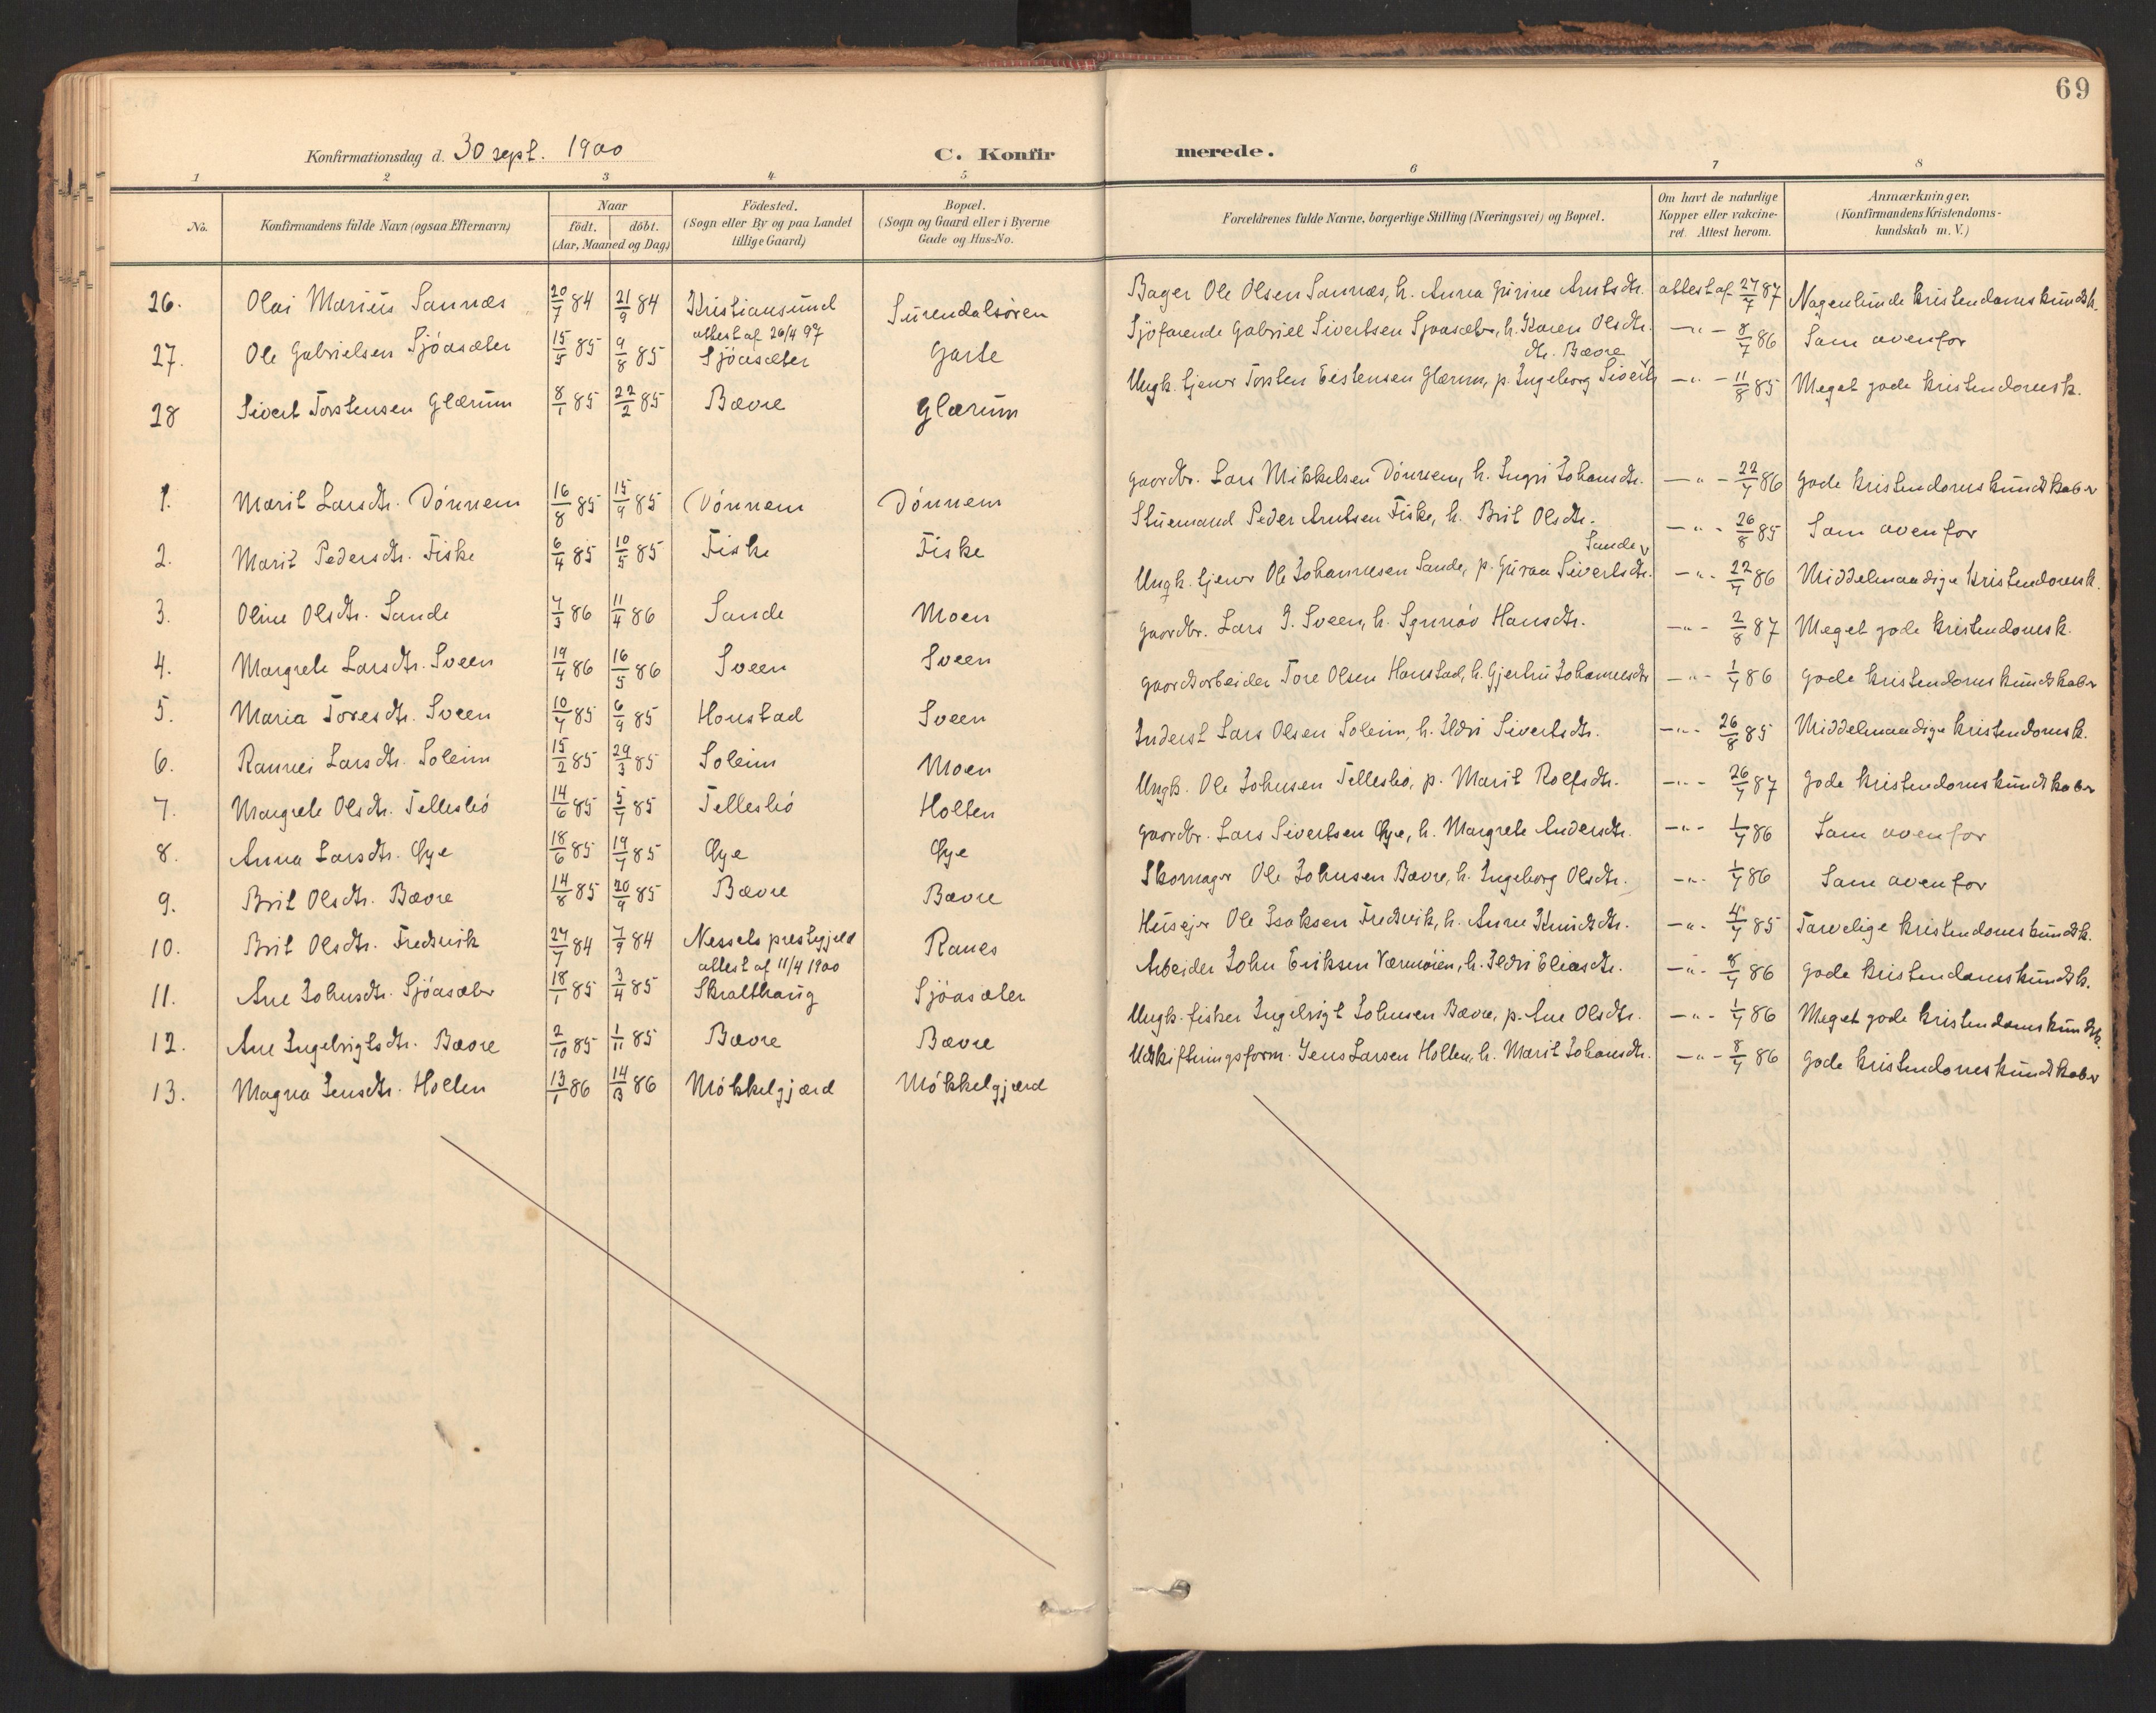 69
Konfirmationsdag d. 30 sept. 1900
C. Konfirmerede.
1 2 3 4 5 6 7 8
No.
Konfirmandens fulde Navn (ogsaa Efternavn)
Naar
födt. döbt.
(Aar, Maaned og Dag)
Födested.
(Sogn eller By og paa Landet
tillige Gaard)
Bopæl.
(Sogn og Gaard eller i Byerne
Gade og Hus-No.
Forældrenes fulde Navne, borgerlige Stilling (Næringsvei) og Bopæl.
Om havt de naturlige
Kopper eller vakcine-
ret. Attest herom.
Anmærkninger.
(Konfirmandens Kristendoms-
kundskab m. V.)
26. Olai Marius Sannæs 20/7 84 21/9 84 Kristiansund Surendalsören Bager Ole Olsen Sannæs, h. Anna Gurine Arntsdtr. attest af 27/7 87 Nogenlunde kristendomskundsk.
attest af 26/4 97
27. Ole Gabrielsen Sjöasæter 15/5 85 9/8 85 Sjöasæter Garte Sjöfarende Gabriel Sivertsen Sjöasæter, h. Karen Olsdtr. —"— 8/7 86 Som ovenfor
dtr. Bævre
28 Sivert Torstensen Glærum 8/1 85 22/2 85 Bævre Glærum Ungk. tjener Torsten Estensen Glærum, p. Ingeborg Siverts —"— 11/8 85 Meget gode kristendomsk.
1. Marit Larsdtr. Dönnem 16/8 85 15/9 85 Dönnem Dönnem Gaardbr. Lars Mikkelsen Dönnem, h. Ingri Johansdtr. —"— 22/7 86 Gode kristendomskundskaber
2. Marit Pedersdtr. Fiske 6/4 85 10/5 85 Fiske Fiske Stuemand Peder Arntsen Fiske, h. Brit Olsdtr. —"— 26/8 85 Som ovenfor
Sande
3. Oline Olsdtr. Sande 7/3 86 11/4 86 Sande Moen Ungk. tjener Ole Johannesen Sande, p. Guraa Sivertsdtr. —"— 22/7 86 Middelmaadige kristendomsk.
4. Margrete Larsdtr. Sveen 19/4 86 16/5 86 Sveen Sveen Gaardbr. Lars I. Sveen, h. Sgunöv Hansdtr. —"— 2/8 87 Meget gode kristendomsk.
5. Maria Toresdtr. Sveen 10/7 85 6/9 85 Honstad Sveen Gaardarbeider Tore Olsen Honstad, h. Gjertru Johannesdtr —"— 1/7 86 Gode kristendomskundskaber
6. Rannei Larsdtr. Soleim 15/2 85 29/3 85 Soleim Moen Inderst Lars Olsen Soleim, h. Ildri Sivertsdtr. —"— 26/8 85 Middelmaadige kristendomsk.
7. Margrete Olsdtr. Tellesbö 14/6 85 5/7 85 Tellesbö Holten Ungk. Ole Johnsen Tellesbö, p. Marit Rolfsdtr. —"— 26/7 87 Gode kristendomskundskaber
8. Anna Larsdtr. Øye 18/6 85 19/7 85 Øye Øye Gaardbr. Lars Sivertsen Øye, h. Margrete Andersdtr. —"— 1/7 86 Som ovenfor
9. Brit Olsdtr. Bævre 14/8 85 20/9 85 Bævre Bævre Skomager Ole Johnsen Bævre, h. Ingeborg Olsdtr. —"— 1/7 86 Som ovenfor
10. Brit Olsdtr. Fredsvik 27/7 84 7/9 84 Nessets prestegjeld Ranes Huseier Ole Isaksen Fredsvik, h. Anne Knudsdtr. —"— 4/7 85 Tarvelige kristendomskundsk.
attest af 11/4 1900
11. Ane Johnsdtr. Sjöasæter 18/1 85 3/4 85 Skralthaug Sjöasæter Arbeider John Eriksen Værmöien, h. Ildri Eliasdtr. —"— 8/7 86 Gode kristendomskundsk.
12. Ane Ingebrigtsdtr. Bævre 2/10 85 1/11 85 Bævre Bævre Ungk. fisker Ingebrigt Johnsen Bævre, p. Ane Olsdtr. —"— 1/7 86 Meget gode kristendomskundsk.
13. Magna Jensdtr. Holten 13/1 86 14/3 86 Mökkelgjærd Mökkelgjærd Udskiftningsform. Jens Larsen Holten, h. Marit Johansdtr. —"— 8/7 86 Gode kristendomskundskaber